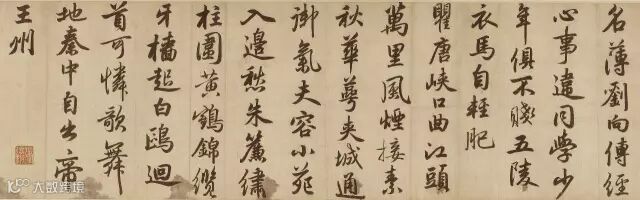 名薄劉向傳經
心事違同學少
年俱不賤五陵
衣馬自輕肥
瞿唐峽口曲江頭
萬里風煙接素
秋華萼夾城通
御氣夫容小苑
入邊愁朱簾繡
柱圍黃鶴錦纜
牙檣起白鷗迴
首可憐歌舞
地秦中自古帝
王州
大数跨境